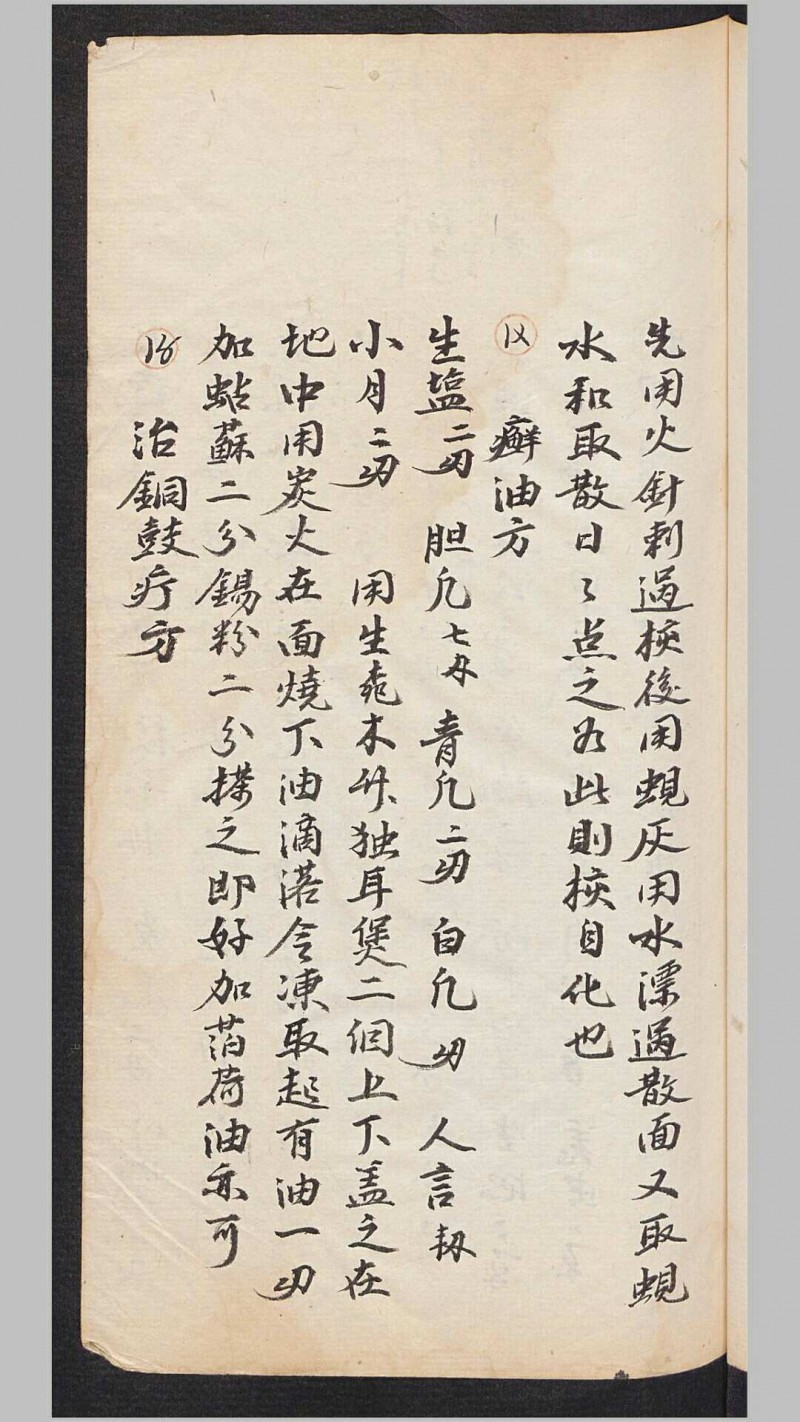 先用火針刺過核後用蜆灰用水漂過散面又取蜆
水和取散日々点之如此則核自化也
癬油方
生塩二刄 胆凡七 青凡二刄 白凡刄 人言
小月二刄 用生 木 独耳煲二個上下盖之在
地中用炭火在面燒下油滴落令凍取起有油一刄
加蛤蘇二分錫粉二分搽之即好加薄荷油亦可
治銅鼓疔方